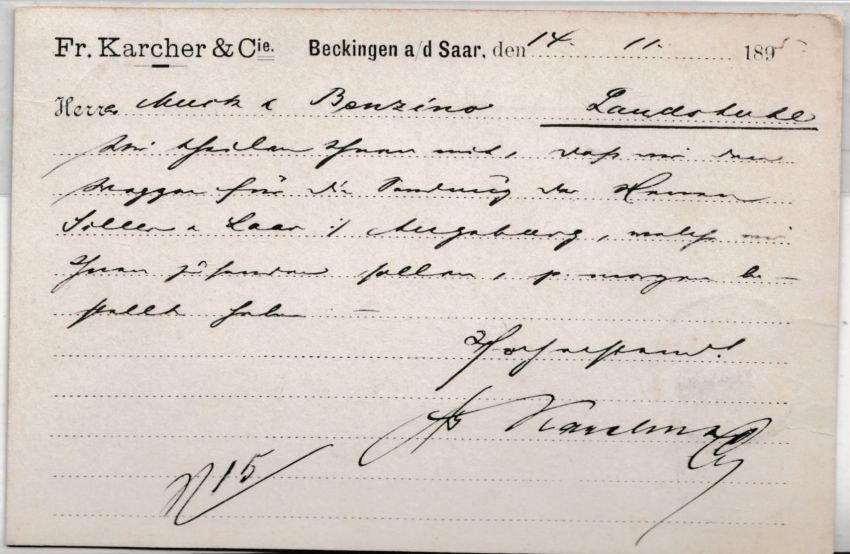 Fr. Karcher & Cie. Beckingen a/d Saar, den 14. 11. 1895
Herren Muck & Benzino Landstuhl
Wir theilen Ihnen mit, daß wir den
Waggon für die Sendung der Herren
& Laar i/ Augsburg, welche wir
Ihnen zusenden sollen, p. morgen be-
stellt haben. —
Hochachtend!
Fr Karcher & Cie
N 15